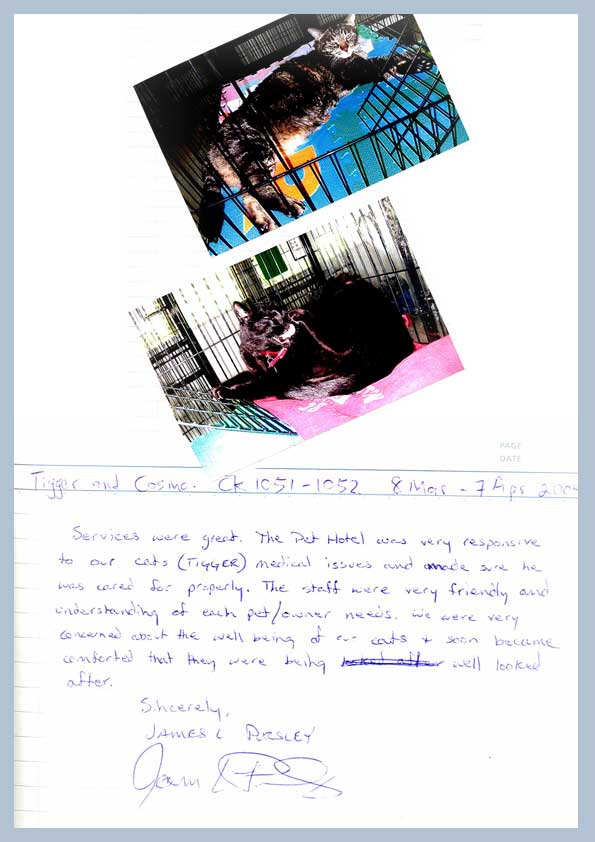 PAGE
DATE
Tigger and Cosmo. CK 1051-1052 8 Mar - 7 Apr
Services were great. The Pet Hotel was very responsive
to our cats (TIGGER) medical issues and made sure he
was cared for properly. The staff were very friendly and
understanding of each pet/owner needs. We were very
concerned about the well being of our cats + soon became
comforted that they were being looked after well looked
after.
Sincerely,
JAMES L PURSLEY